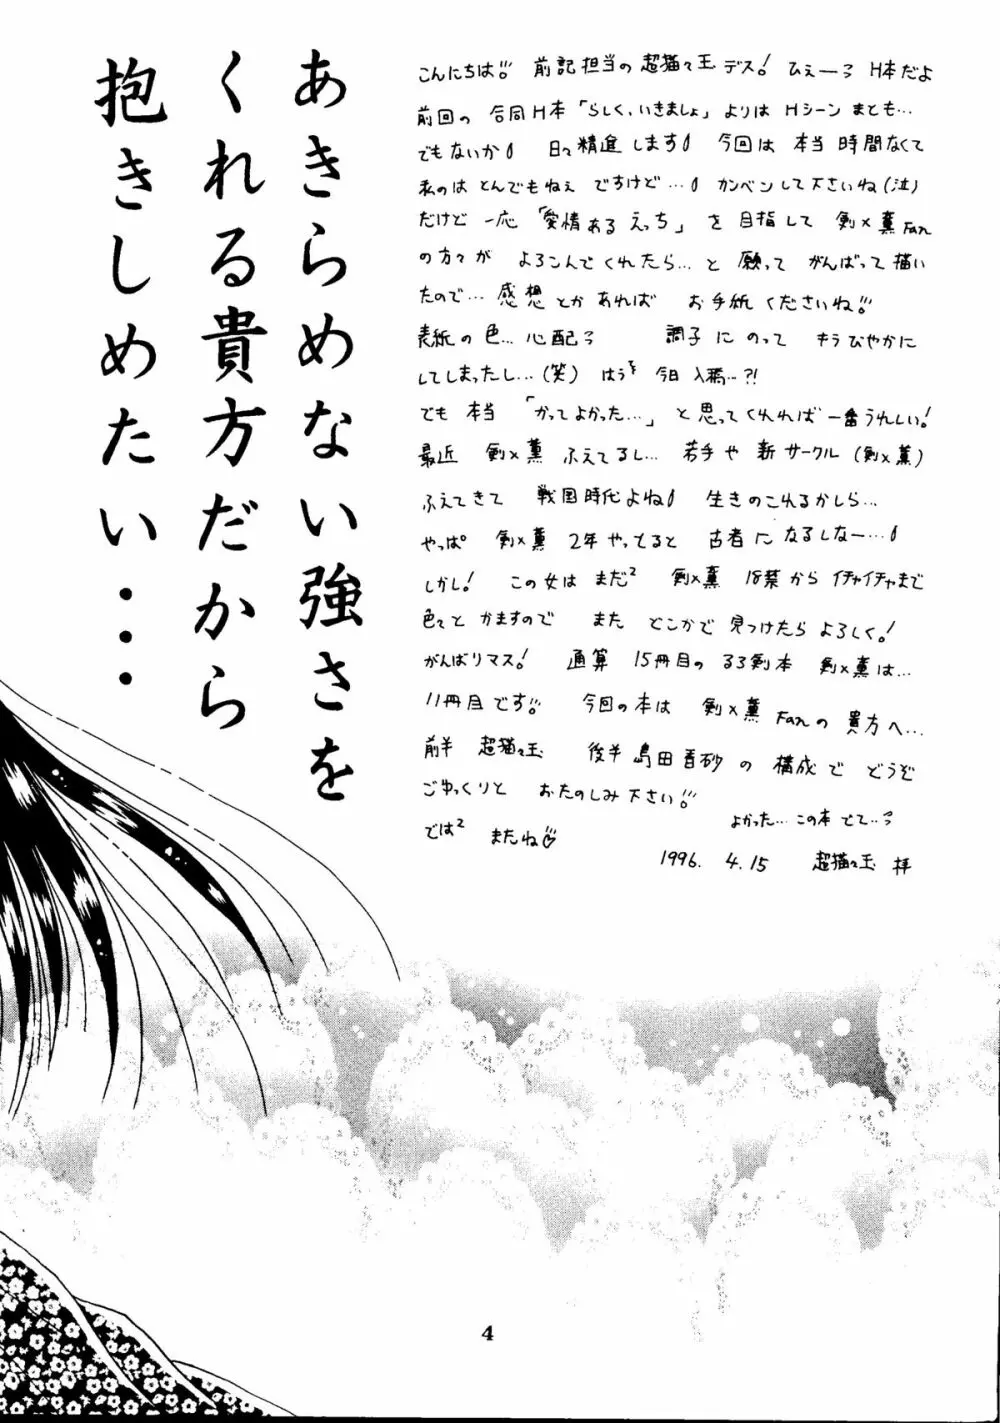 あきらめない強さを
くれる貴方だから
抱きしめたい・・・
こんにちは!! 前記担当の超猫々玉デス! ひえーっ H本だよ
前回の 合同H本「らしく、いきましょ」よりは Hシーン まとも…
でもないか 日々精進します 今回は 本当 時間なくて
私のは とんでもねぇ ですけど… カンベンして下さいね(泣)
だけど 一応 「愛情ある えっち」を 目指して 剣×薫 Fan
の方々が よろこんでくれたら… と 願って がんばって描い
たので… 感想とかあれば お手紙くださいね!!
表紙の色… 心配っ 調子にのって きらびやかに
してしまったし…(笑) はうぅ 今日入稿…?!
でも 本当 「かってよかった…」と思ってくれれば 一番うれしい!
最近 剣×薫 ふえてるし… 若手や 新サークル(剣×薫)
ふえてきて 戦国時代よね 生きのこれるかしら…
やっぱ 剣×薫 2年やってると 古者に なるしなー…
しかし! この女は まだ² 剣×薫 18禁から イチャイチャまで
色々と かますので また どこかで 見つけたら よろしく!
がんばリマス! 通算 15冊目の るろ剣本 剣×薫は…
11冊目です!! 今回の本は 剣×薫 Fanの 貴方へ…
前半 超猫々玉 後半 島田吾砂の 構成で どうぞ
ごゆっくりと おたのしみ下さい!!
では² またね♡ よかった… この本 でて…っ
1996. 4.15 超猫々玉 拝
4